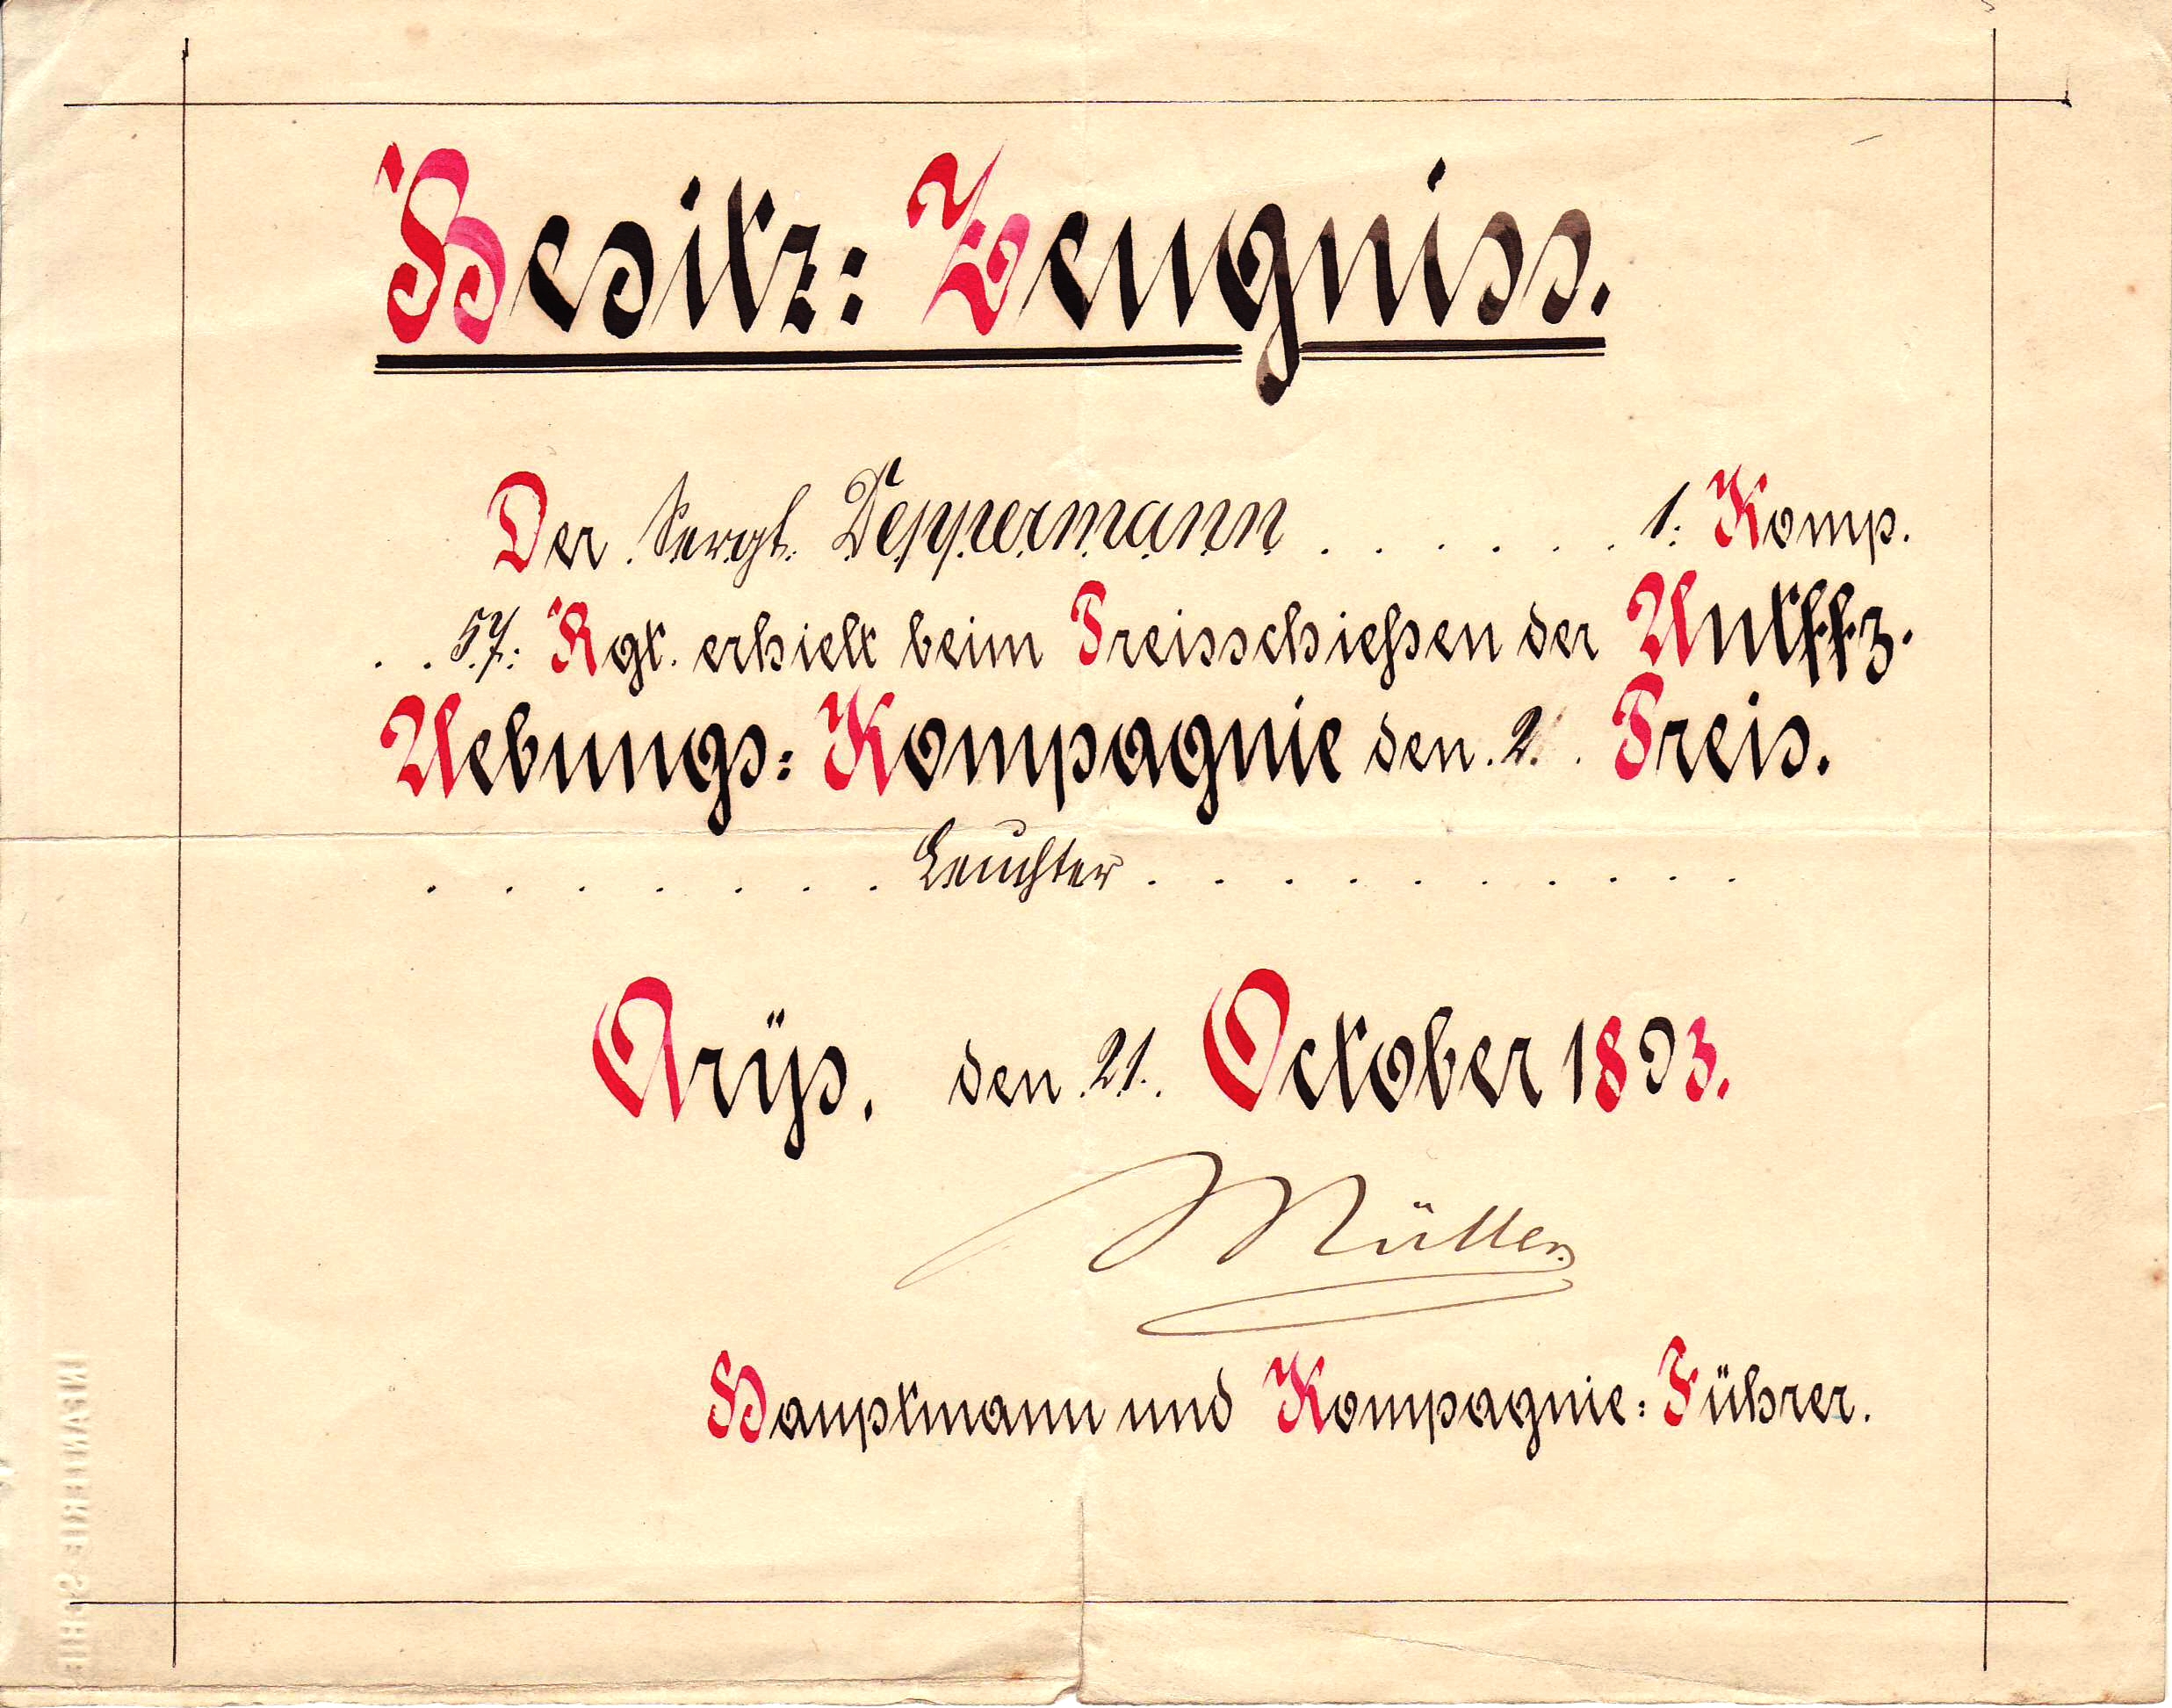 Besitz: Zeugniss.
Der Sergt. Deppermann . . . . . . 1. Komp.
. . 57. Rgt. erhielt beim Preisschießen der Untffz.
Uebungs: Kompagnie den 2. Preis.
. . . . . . . Leuchter . . . . . . . . . . .
Arÿs. den 21. October 1893.
Müller
Hauptmann und Kompagnie: Führer.